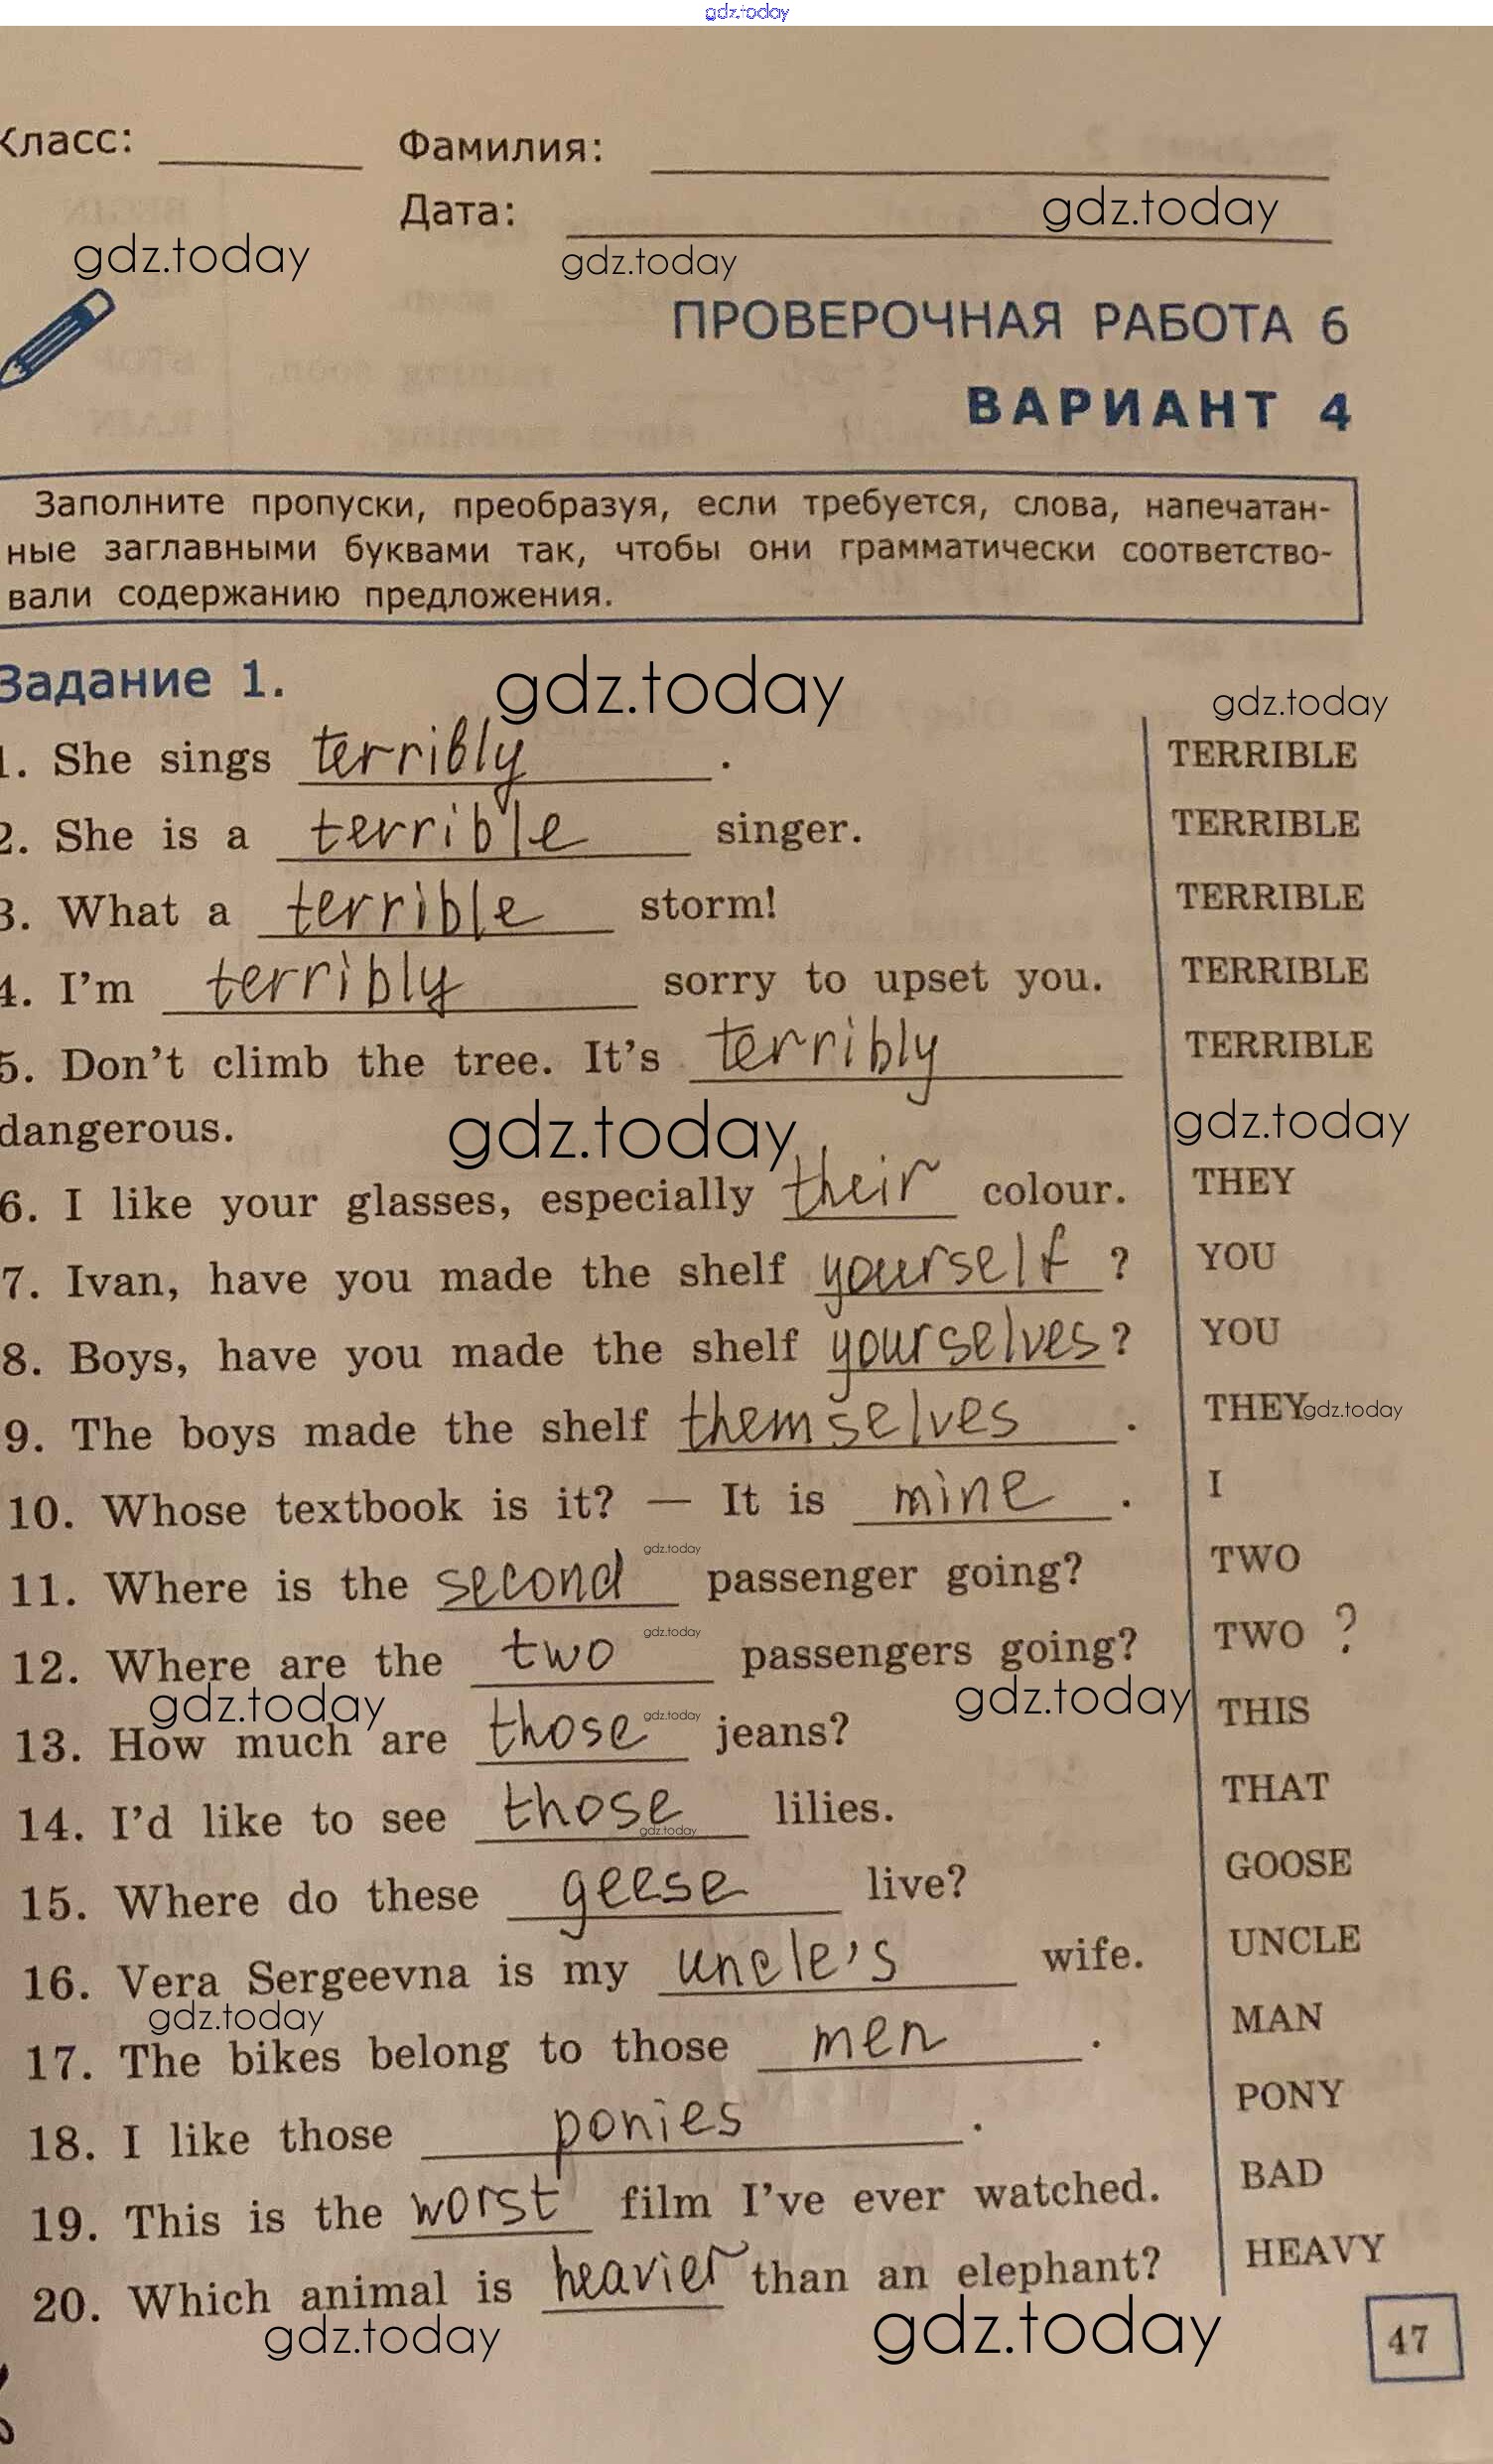 gdz.today
Класс: Фамилия:
Дата: gdz.today
gdz.today gdz.today
ПРОВЕРОЧНАЯ РАБОТА 6
ВАРИАНТ 4
Заполните пропуски, преобразуя, если требуется, слова, напечатан-
ные заглавными буквами так, чтобы они грамматически соответство-
вали содержанию предложения.
Задание 1. gdz.today gdz.today
1. She sings terribly . TERRIBLE
2. She is a terrible singer. TERRIBLE
3. What a terrible storm! TERRIBLE
4. I'm terribly sorry to upset you. TERRIBLE
5. Don't climb the tree. It's terribly TERRIBLE
dangerous. gdz.today gdz.today
6. I like your glasses, especially their colour. THEY
7. Ivan, have you made the shelf yourself ? YOU
8. Boys, have you made the shelf yourselves ? YOU
9. The boys made the shelf themselves . THEY gdz.today
10. Whose textbook is it? — It is mine . I
gdz.today
11. Where is the second passenger going? TWO
gdz.today
12. Where are the two passengers going? TWO ?
gdz.today gdz.today gdz.today
13. How much are those jeans? THIS
14. I'd like to see those lilies. THAT
gdz.today
15. Where do these geese live? GOOSE
16. Vera Sergeevna is my uncle's wife. UNCLE
gdz.today
17. The bikes belong to those men . MAN
18. I like those ponies . PONY
19. This is the worst film I've ever watched. BAD
20. Which animal is heavier than an elephant? HEAVY
gdz.today gdz.today
47